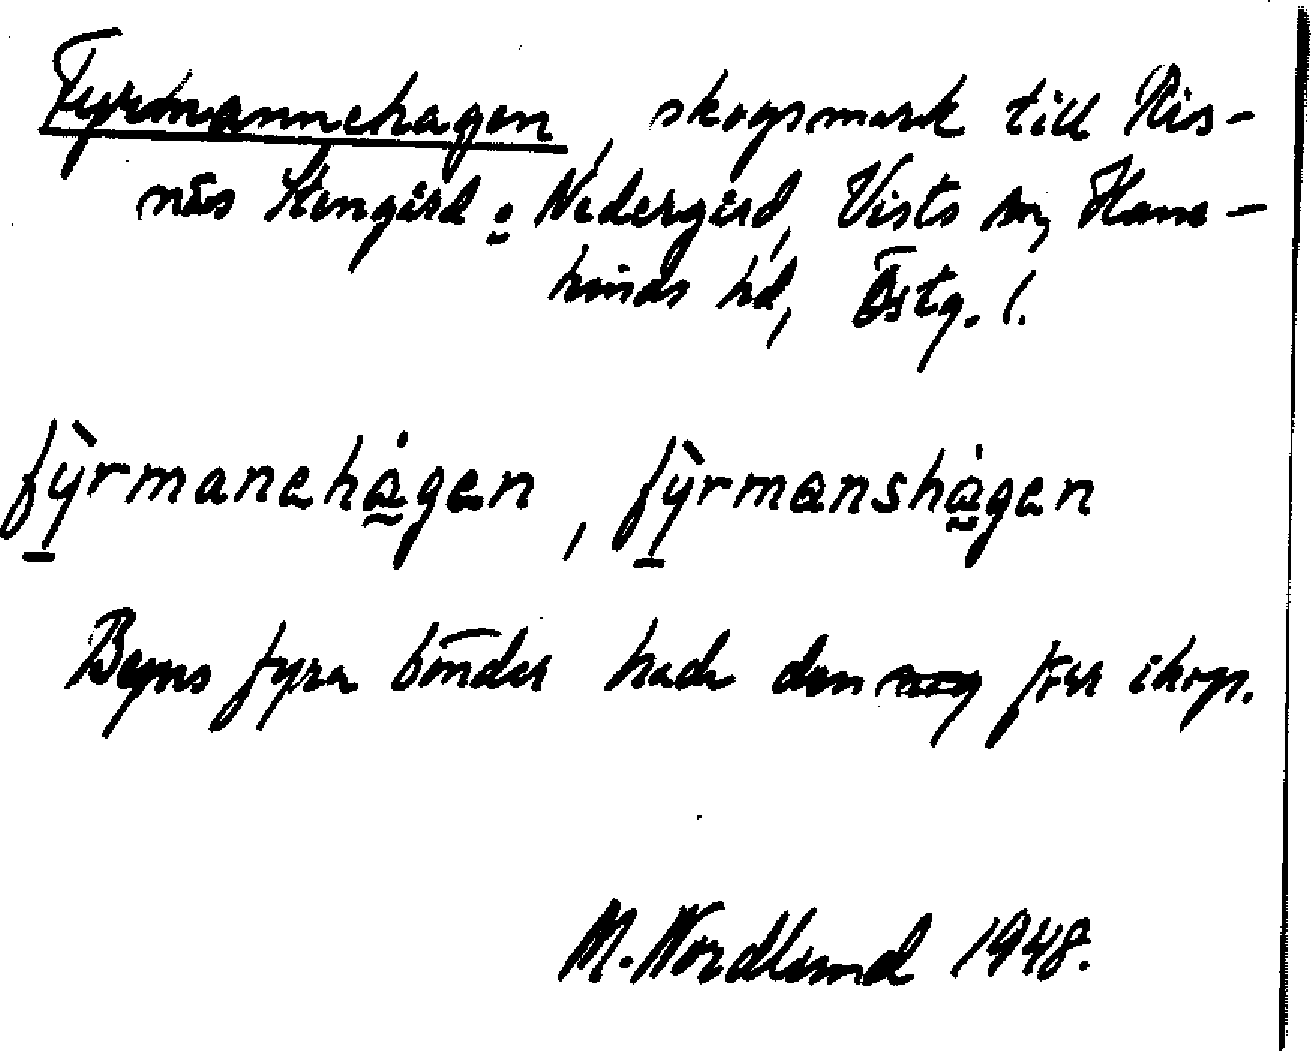 Fyrmannehagen, skogsmark till Ris-
näs Stengård o Nedergård, Vists sn, Hane-
kinds hd, Östg. l.
fỳ̱rmanehågen, fỳ̱rmanshågen
Byns fyra bönder hade den för skog.
M. Nordlund 1948.